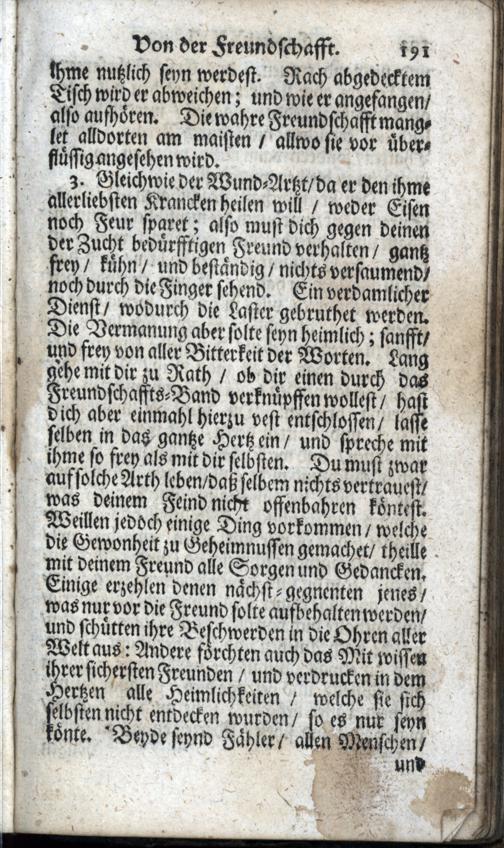 Von der Freundschafft. 191
ihme nutzlich seyn werdest. Nach abgedecktem
Tisch wird er abweichen; und wie er angefangen/
also aufhören. Die wahre Freundschafft mang-
let alldorten am maisten / allwo sie vor über-
flüssig angesehen wird.
3. Gleichwie der Wund-Artzt/ da er den ihme
allerliebsten Krancken heilen will / weder Eisen
noch Feur sparet; also must dich gegen deinen
der Zucht bedürfftigen Freund verhalten / gantz
frey / kühn / und beständig / nichts versaumend/
noch durch die Finger sehend. Ein verdamlicher
Dienst/ wodurch die Laster gebruthet werden.
Die Vermanung aber solte seyn heimlich; sanfft/
und frey von aller Bitterkeit der Worten. Lang
gehe mit dir zu Rath / ob dir einen durch das
Freundschaffts-Band verknüpffen wollest / hast
dich aber einmahl hierzu vest entschlossen/ lasse
selben in das gantze Hertz ein / und spreche mit
ihme so frey als mit dir selbsten. Du must zwar
auf solche Arth leben/daß selbem nichts vertrauest/
was deinem Feind nicht offenbahren köntest.
Weillen jedoch einige Ding vorkommen / welche
die Gewonheit zu Geheimnussen gemachet/ theille
mit deinem Freund alle Sorgen und Gedancken.
Einige erzehlen denen nächst-gegnenten jenes/
was nur vor die Freund solte aufbehalten werden/
und schütten ihre Beschwerden in die Ohren aller
Welt aus: Andere förchten auch das Mit wissen
ihrer sichersten Freunden / und verdrucken in dem
Hertzen alle Heimlichkeiten / welche sie sich
selbsten nicht entdecken wurden / so es nur seyn
könte. Beyde seynd Fähler / allen Menschen /
und